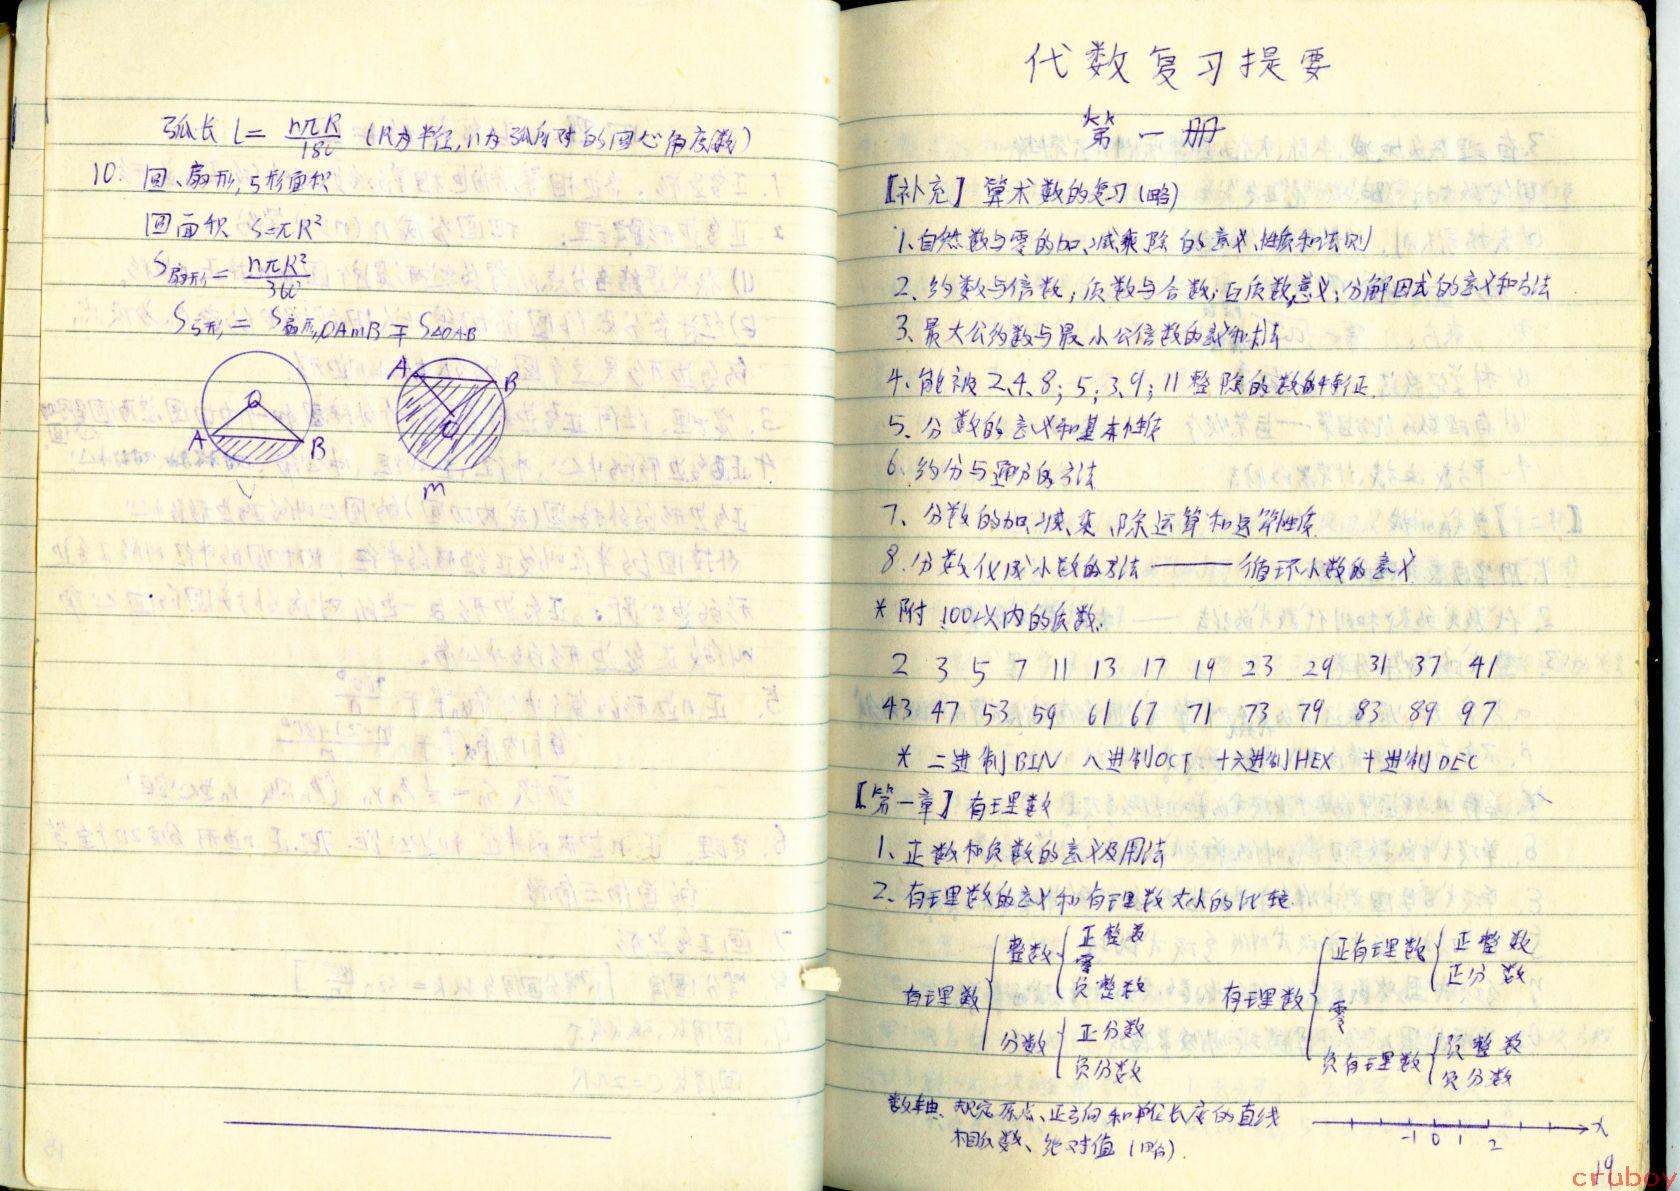 弧长 L = nπR/180 (R为半径,n为弧所对的圆心角度数)
10. 圆、扇形,弓形面积
圆面积 S=πR²
S扇形 = nπR²/360
S弓形 = S扇形OAmB ∓ S△OAB
O A B
A B O m
代数复习提要
第一册
【补充】算术数的复习(略)
1、自然数与零的加、减乘除的意义、性质和法则
2、约数与倍数;质数与合数;互质数意义;分解因式的意义和方法
3、最大公约数与最小公倍数的意义和方法
4、能被2、4、8;5;3、9;11整除的数的特征
5、分数的意义和基本性质
6、约分与通分的方法
7、分数的加、减、乘、除运算和运算性质
8、分数化成小数的方法——循环小数的意义
* 附 100以内的质数.
2 3 5 7 11 13 17 19 23 29 31 37 41
43 47 53 59 61 67 71 73 79 83 89 97
* 二进制BIN 八进制OCT 十六进制HEX 十进制DEC
【第一章】有理数
1、正数和负数的意义及用法
2、有理数的意义和有理数大小的比较
有理数 { 整数 { 正整数 零 负整数
分数 { 正分数 负分数
有理数 { 正有理数 { 正整数 正分数
零
负有理数 { 负整数 负分数
数轴 规定原点、正方向和单位长度的直线
-1 0 1 2 x
相反数、绝对值(略).
19
cruboy